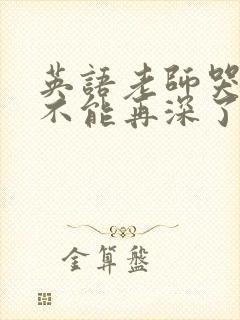 英語老師哭
不能再深了
金算盤